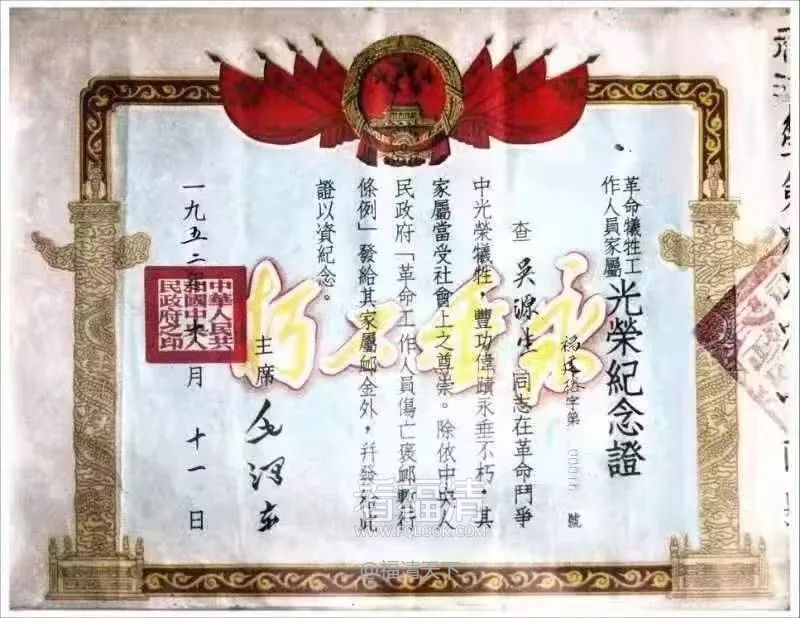 革命犧牲工
作人員家屬
光榮紀念證
字第 號
查 吳源生 同志在革命鬥爭
中光榮犧牲，豐功偉蹟永垂不朽，其
家屬當受社會上之尊崇。除依中央人
民政府「革命工作人員傷亡褒卹暫行
條例」發給其家屬卹金外，幷發給此
證以資紀念。
主席 毛澤東
一九五二年 月 十一 日
中華人民共
和國中央人
民政府之印
永垂不朽
看福清
WWW.FQLOOK.COM
@福清天下